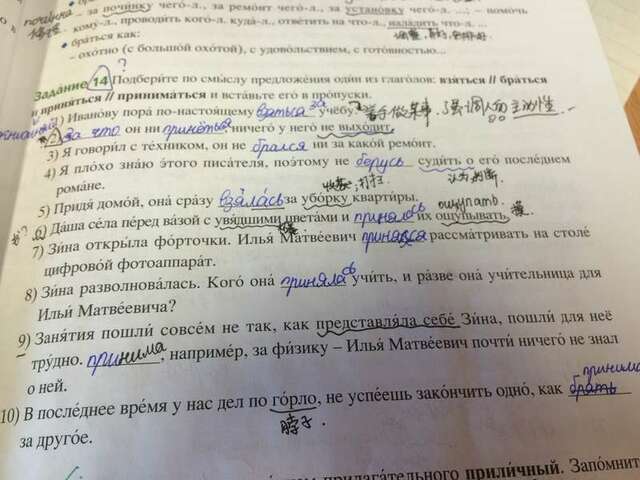 за почи́нку чего́-л., за ремо́нт чего́-л., за устано́вку чего́-л. ...; – помо́чь
кому́-л., проводи́ть кого́-л. куда́-л., отве́тить на что́-л., нала́дить что́-л. ...
• бра́ться как:
– охо́тно (с большо́й охо́той), с удово́льствием, с гото́вностью...
Зада́ние 14 Подбери́те по смы́слу предложе́ния оди́н из глаго́лов: взя́ться // бра́ться
и приня́ться // принима́ться и вста́вьте его́ в про́пуски.
1) Ивано́ву пора́ по-настоя́щему взяться за учёбу.
2) За что он ни приняться ничего́ у него́ не выхо́дит.
3) Я говори́л с те́хником, он не брался ни за како́й ремо́нт.
4) Я пло́хо зна́ю э́того писа́теля, поэ́тому не берусь суди́ть о его́ после́днем
рома́не.
5) Придя́ домо́й, она́ сра́зу взялась за убо́рку кварти́ры.
ощупать
6) Да́ша се́ла пе́ред ва́зой с увя́дшими цвета́ми и принялась их ощу́пывать.
7) Зи́на откры́ла фо́рточки. Илья́ Матве́евич принялся рассма́тривать на столе́
цифрово́й фотоаппара́т.
8) Зи́на разволнова́лась. Кого́ она́ принялась учи́ть, и ра́зве она́ учи́тельница для
Ильи́ Матве́евича?
9) Заня́тия пошли́ совсе́м не так, как представля́ла себе́ Зи́на, пошли́ для неё
тру́дно. принима, наприме́р, за фи́зику – Илья́ Матве́евич почти́ ничего́ не знал
о ней.
принима
10) В после́днее вре́мя у нас дел по го́рло, не успе́ешь зако́нчить одно́, как брать
за друго́е.
脖子
прилага́тельного прили́чный. Запо́мнит